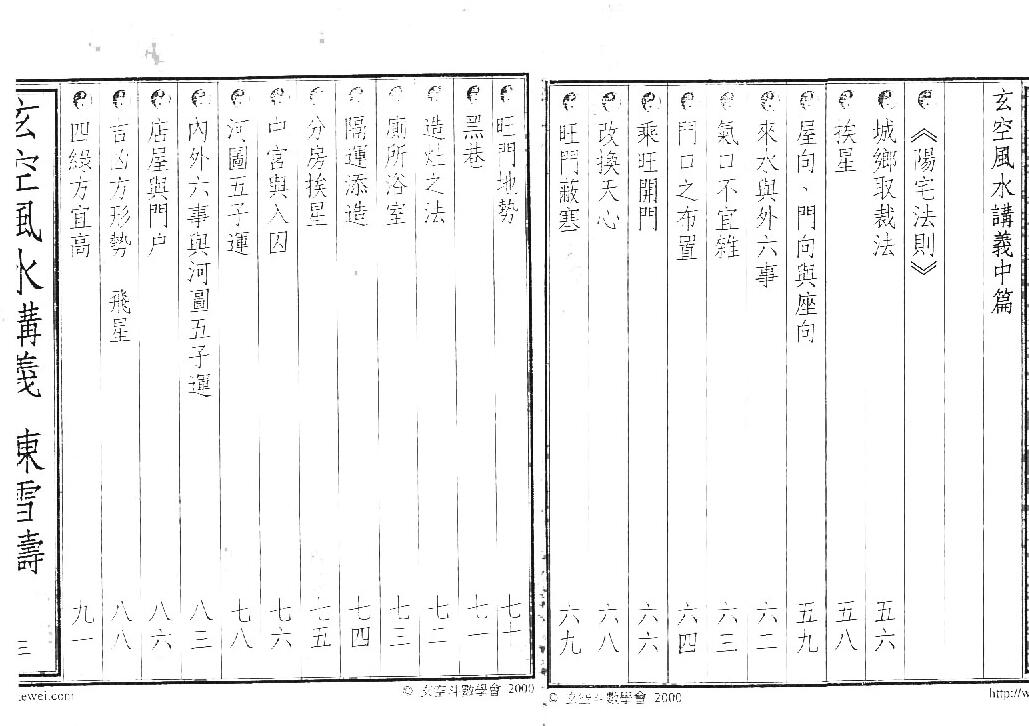 玄空風水講義中篇
《陽宅法則》
城鄉取裁法 五六
挨星 五八
屋向、門向與座向 五九
來水與外六事 六二
氣口不宜雜 六三
門口之布置 六四
乘旺開門 六六
改換天心 六八
旺門蔽塞 六九
旺門地勢 七十
黑巷 七一
造灶之法 七二
廁所浴室 七三
隔運添造 七四
分房挨星 七五
中宮與入囚 七六
河圖五子運 七八
內外六事與河圖五子運 八三
店屋與門戶 八六
吉凶方形勢 飛星 八八
四綠方宜高 九一
玄空風水講義 陳雪濤
三
http://w
© 玄空斗數學會 2000
© 玄空斗數學會 2000
ewei.com